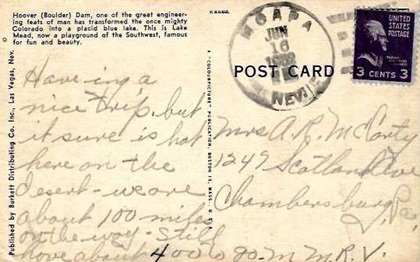 Hoover (Boulder) Dam, one of the great engineer-
ing feats of man has transformed the once mighty
Colorado into a placid blue lake. This is Lake
Mead, now a playground of the Southwest, famous
for fun and beauty.
MOAPA
JUN
16
NEV.
UNITED
STATES
POSTAGE
3 CENTS 3
POST CARD
Published by Burkett Distributing Co., Inc. Las Vegas, Nev.
Having a
nice trip but
it sure is hot
here on the
desert - we are
about 100 miles
on the way - Still
have about 400 to go. M M. R. V.
Mrs A. R. McCarty
1247 Scotland Ave
Chambersburg,
Pa.